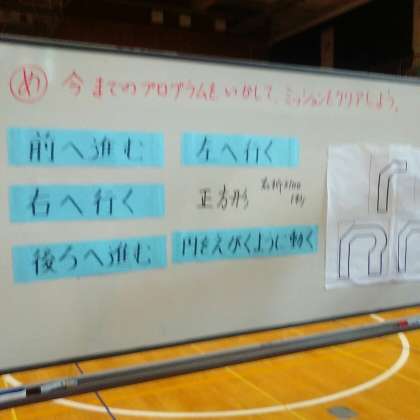 め 今までのプログラムをいかして、ミッションをクリアしよう。
前へ進む
左へ行く
右へ行く
正方形
後ろへ進む
円をえがくように動く